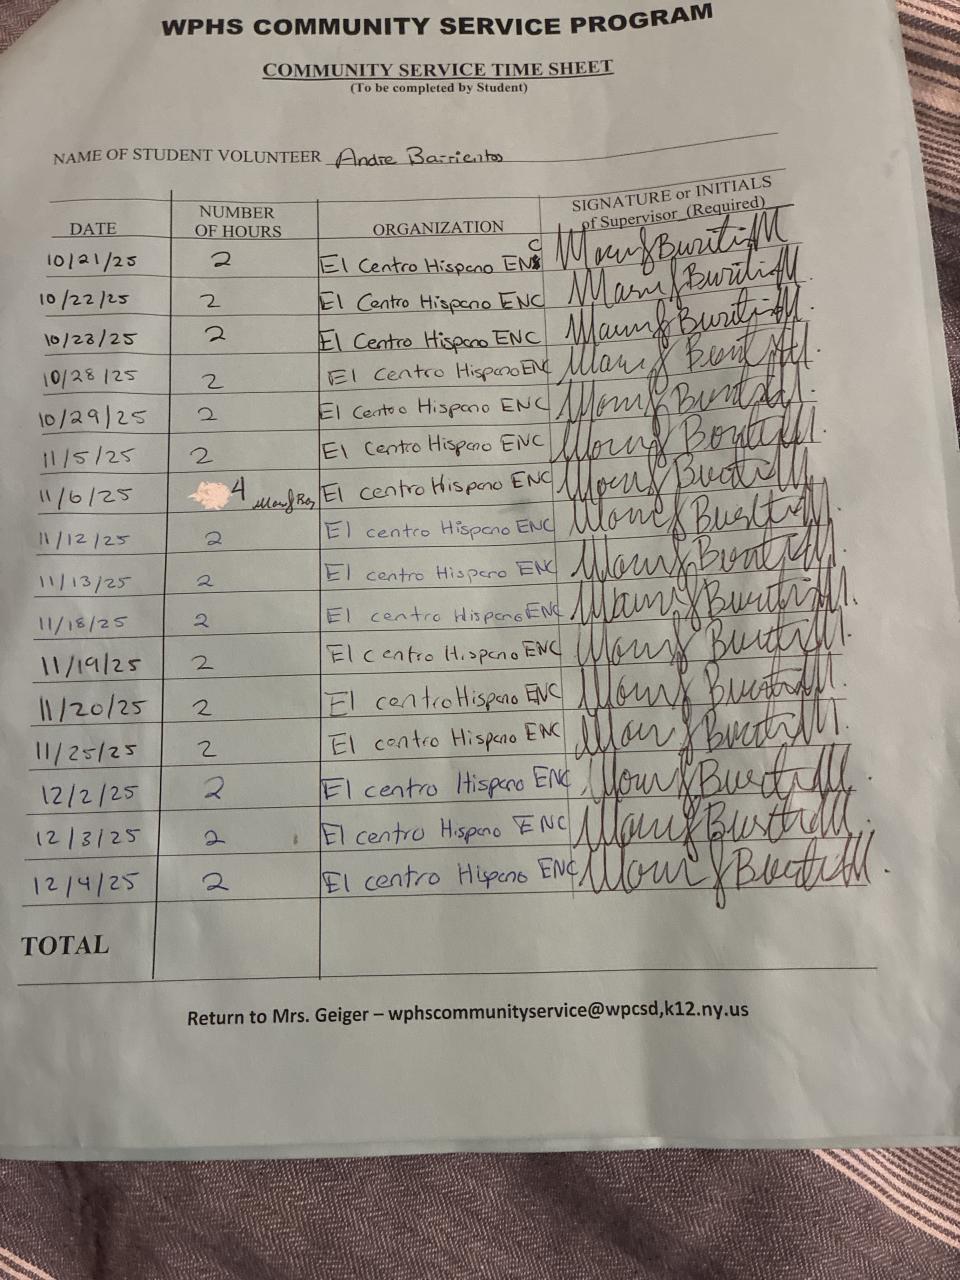 WPHS COMMUNITY SERVICE PROGRAM
COMMUNITY SERVICE TIME SHEET
(To be completed by Student)
NAME OF STUDENT VOLUNTEER Andre Barrientos
DATE NUMBER OF HOURS ORGANIZATION SIGNATURE or INITIALS of Supervisor (Required)
10/21/25 2 El Centro Hispano ENC
10/22/25 2 El Centro Hispano ENC
10/23/25 2 El Centro Hispano ENC
10/28/25 2 El Centro Hispano ENC
10/29/25 2 El Centro Hispano ENC
11/5/25 2 El Centro Hispano ENC
11/6/25 4 El centro Hispano ENC
11/12/25 2 El centro Hispano ENC
11/13/25 2 El centro Hispano ENC
11/18/25 2 El centro Hispano ENC
11/19/25 2 El centro Hispano ENC
11/20/25 2 El centro Hispano ENC
11/25/25 2 El centro Hispano ENC
12/2/25 2 El centro Hispano ENC
12/3/25 2 El centro Hispano ENC
12/4/25 2 El centro Hispano ENC
TOTAL
Return to Mrs. Geiger – wphscommunityservice@wpcsd,k12.ny.us